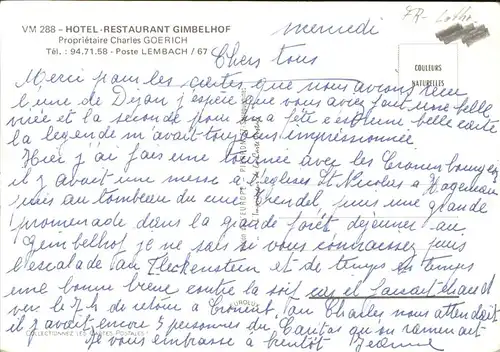 VM 288 - HOTEL-RESTAURANT GIMBELHOF
Propriétaire Charles GOERICH
Tél. : 94.71.58 - Poste LEMBACH / 67
mercredi
FR-
COULEURS
NATURELLES
Chers tous
Merci pour les cartes que nous avions reçu
l'une de Dijon j'espère que vous avez fait une belle
virée et la seconde pour ma fête c'est une belle carte
la legende m'avait toujours impressionnée.
Hier j'ai fais une tournée avec les
il y avait une messe a l'eglise St Nicolas a Haguenau
puis au tombeau du curé puis une grande
promenade dans la grande forêt, déjeuner au
Gimbelhof je ne sais si vous connaissez puis
l'escalade du Fleckenstein et de temps en temps
une bonne bière contre la soif car il faisait chaud
vers le 7 h de retour a Charles nous attendait
il y avait encore 3 personnes du Caritas qu'on ramenait
Je vous embrasse a bientôt Jeanne
COLLECTIONNEZ LES CARTES POSTALES